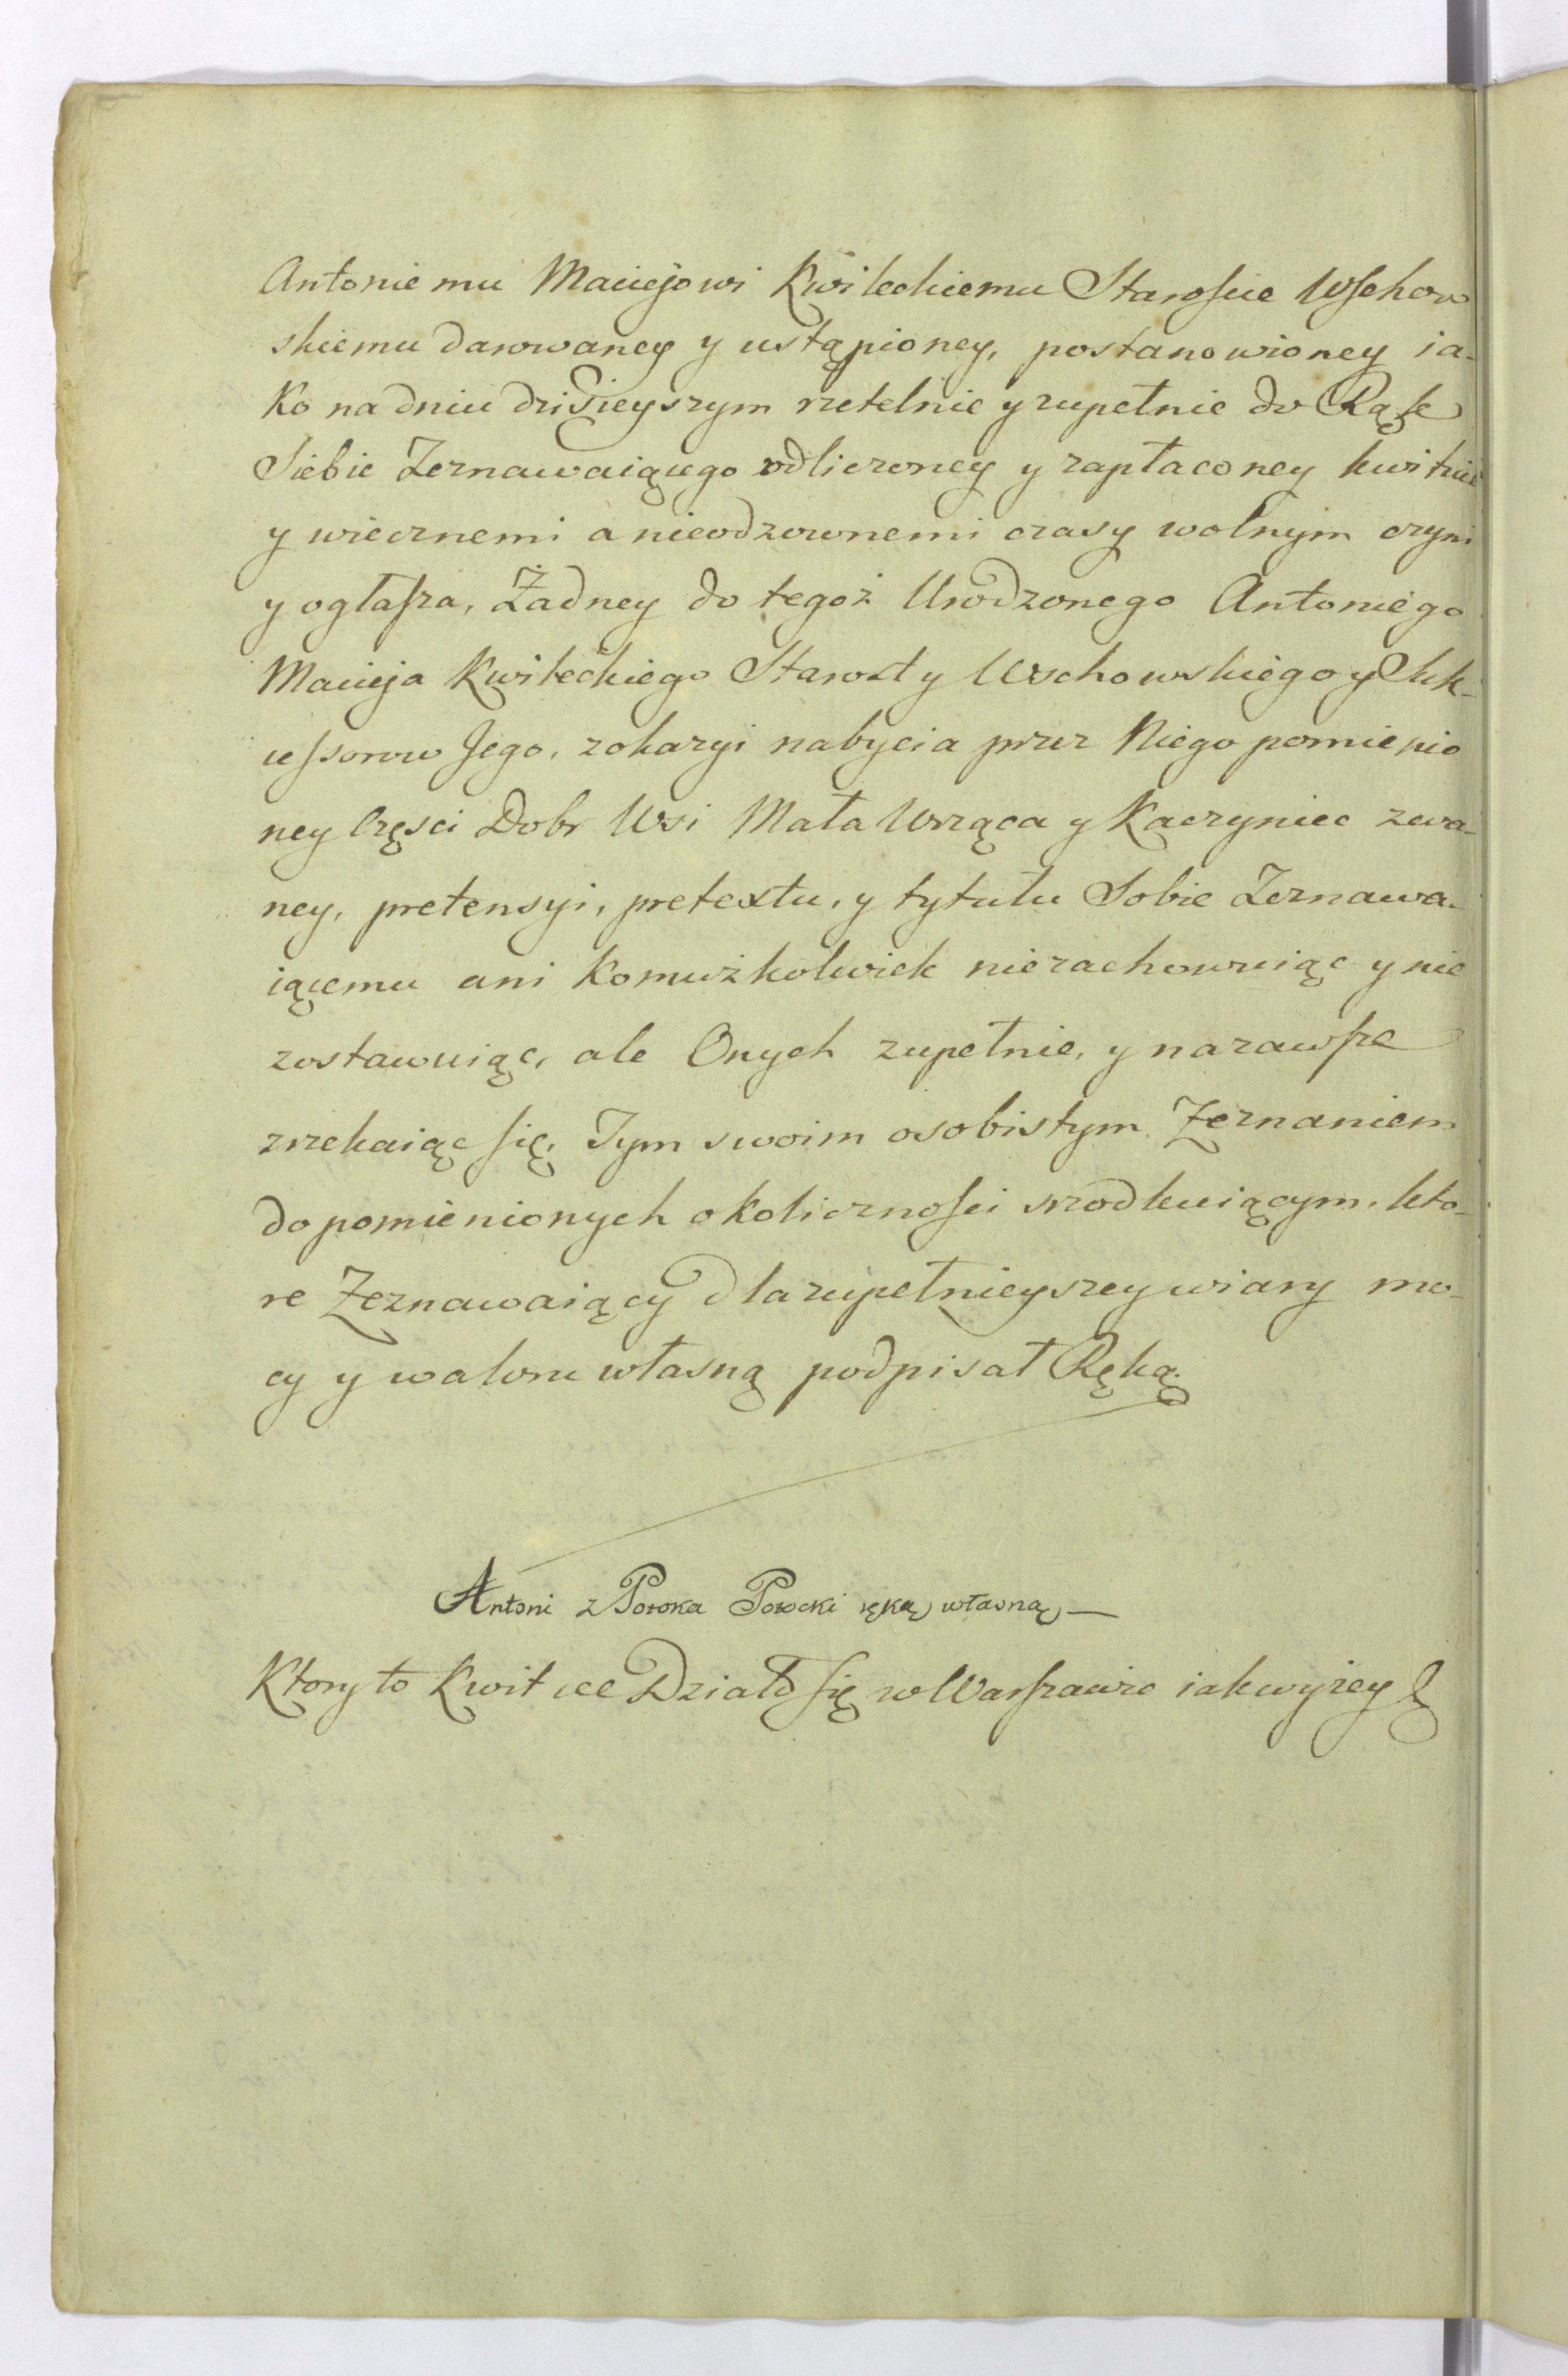 Antoniemu Maciejowi Kwileckiemu Staroscie Wschow
skiemu darowaney y ustąpioney, postanowioney ia-
ko na dniu dzisieyszym rzetelnie y zupełnie do Rąk
Siebie Zeznawaiącego odliczoney y zapłaconey kwituie
y wiecznemi a nieodzownemi czasy wolnym czyni
y ogłasza, Żadney do tegoż Urodzonego Antoniego
Macieja Kwileckiego Starosty Wschowskiego y Suk-
cessorow Jego, z okazyi nabycia przez Niego pomienio
ney Częsci Dobr Wsi Mała Wrząca y Kączyniec zwa-
ney, pretensyi, pretextu, y tytułu Sobie Zeznawa-
iącemu ani komużkolwiek niezachowuiąc y nie
zostawuiąc, ale Onych zupełnie, y nazawsze
zrzekaiąc się, Tym swoim osobistym Zeznaniem
do pomienionych okolicznosci srzodkuiącym, kto-
re Zeznawaiący dla zupełnieyszey wiary mo-
cy y waloru własną podpisał Ręką.
Antoni z Potoka Potocki ręką własną
Ktory to Kwit ut Działo się w Warszawie iak wyżey